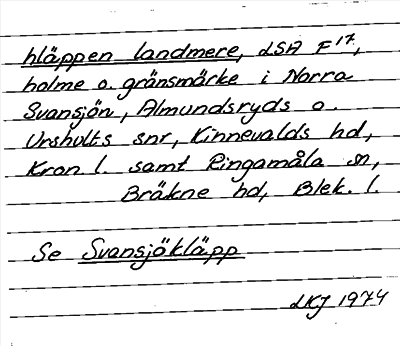 kläppen landmere, LSA F17,
holme o. gränsmärke i Norra
Svansjön, Almundsryds o.
Urshults snr, Kinnevalds hd,
Kron l. samt Ringamåla sn,
Bräkne hd, Blek. l.
Se Svansjökläpp
LKJ 1974